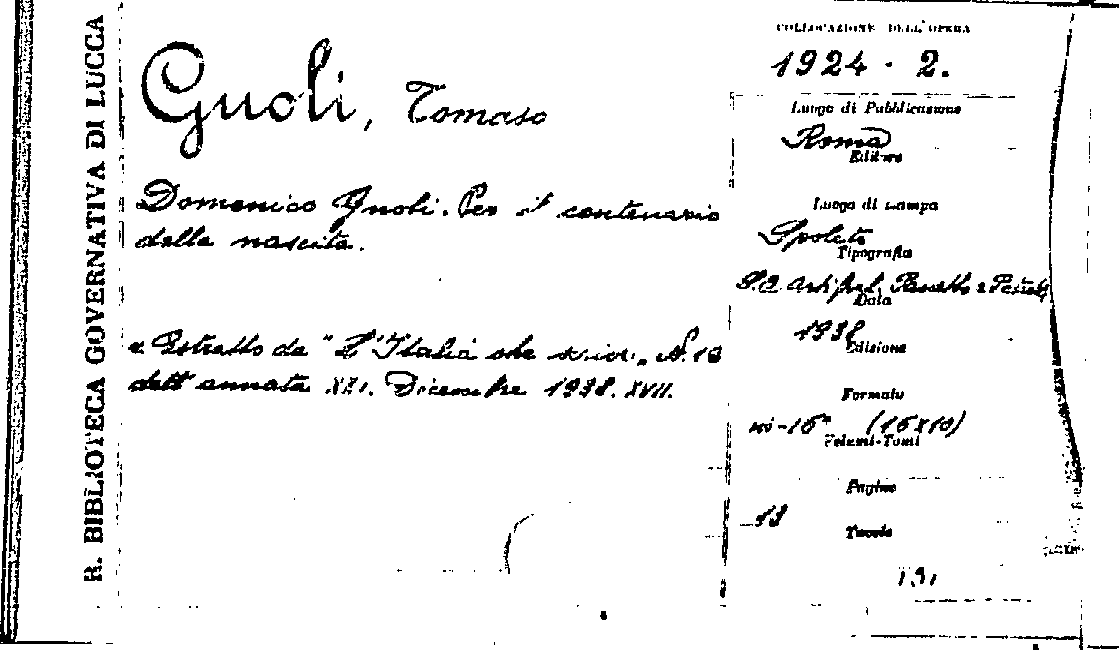 R. BIBLIOTECA GOVERNATIVA DI LUCCA
Gnoli, Tomaso
Domenico Gnoli. Per il centenario
della nascita.
« Estratto da "L'Italia che scrive" N. 10
dell'annata XXI. Dicembre 1938. XVII.
COLLOCAZIONE DELL'OPERA
1924 - 2.
Luogo di Pubblicazione
Roma
Editore
Luogo di stampa
Spoleto
Tipografia
Data
1938
Edizione
Formato
in-16° (16x10)
Volumi-Tomi
Pagine
13
Tavole